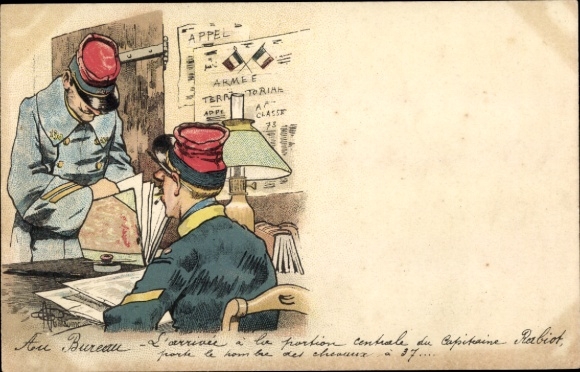 APPEL
ARMÉE
TERRITORIALE
APPEL
CLASSE
73
Au Bureau - L'arrivée à la portion centrale du Capitaine Rabiot,
porte le nombre des chevaux à 37....